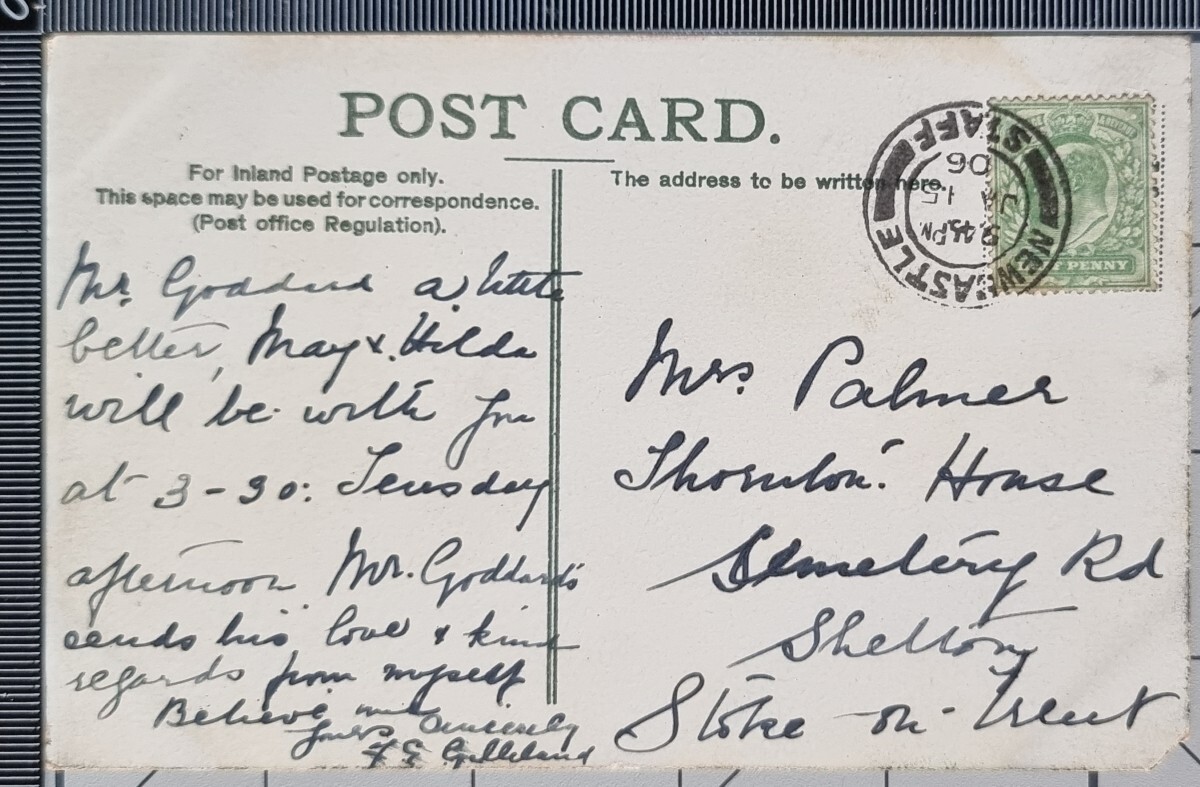 POST CARD.
For Inland Postage only.
This space may be used for correspondence.
(Post office Regulation).
The address to be written here.
NEWCASTLE
STAFF
9.45 PM
JA 15
06
PENNY
Mr. Goddard a little
better, May & Hilda
will be with you
at 3-30: Teusday
afternoon Mr. Goddard's
sends his love & kind
regards from myself
Believe me
yours sincerely
Mrs. Palmer
Thornton. House
Cemetery Rd
Shelton
Stoke-on-Trent